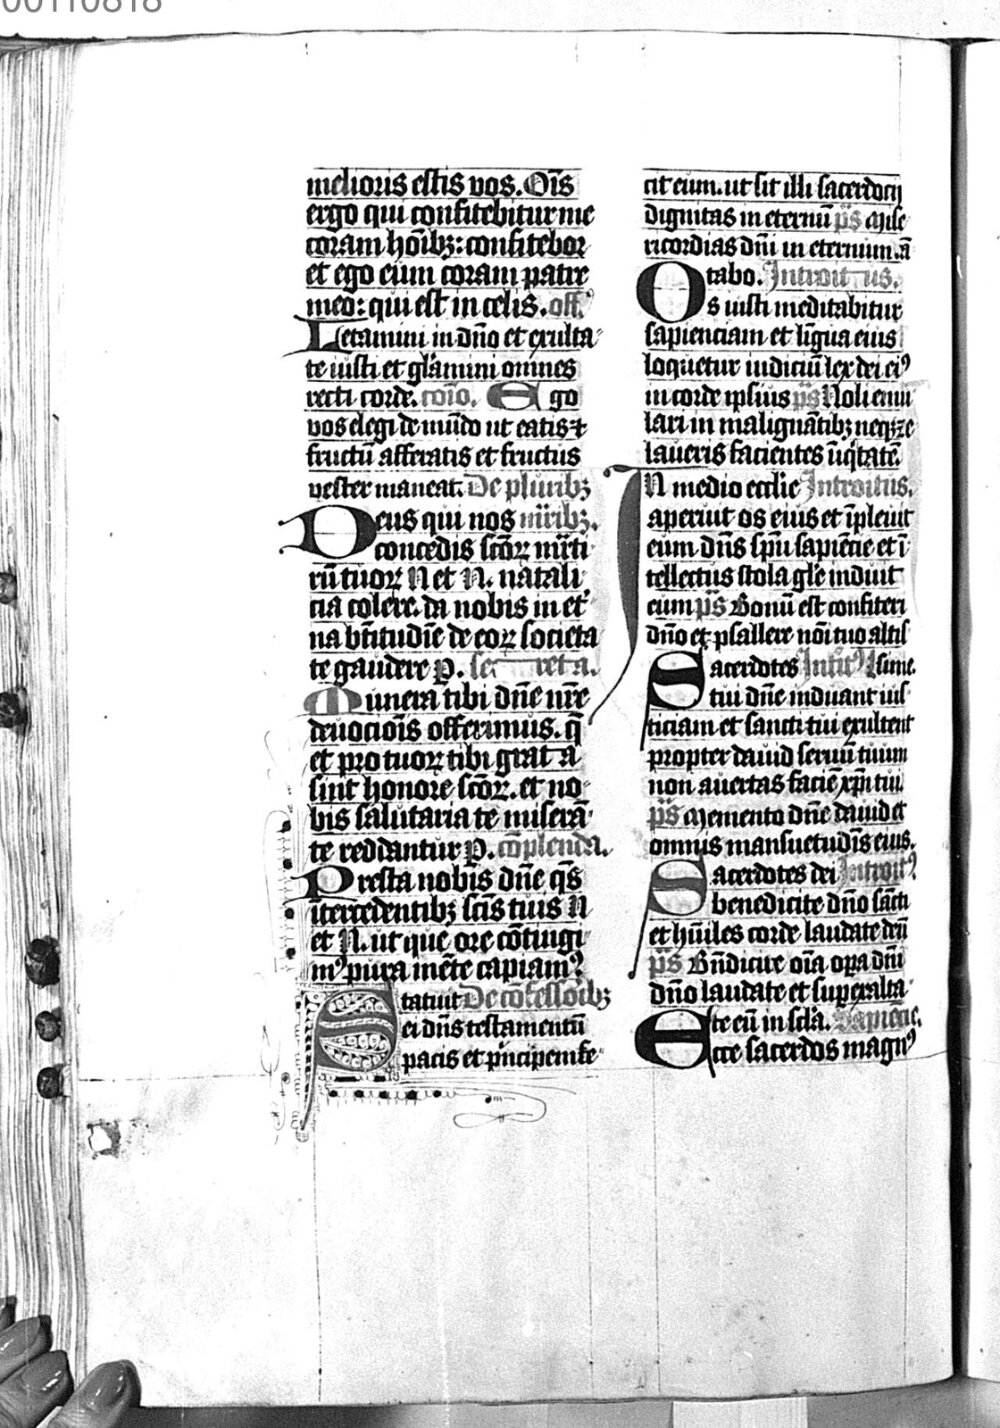 00110818
melioris estis vos. Om̄s
ergo qui confitebitur me
coram hoībꝫ: confitebor
et ego eum coram patre
meo: qui est in celis. off.
Letamini in dn̄o et exulta
te iusti et gl̄amini omnes
recti corde. cōio. Ego
vos elegi de mūdo ut eatis ⁊
fructū afferatis et fructus
vester maneat. De pluribꝫ
Deus qui nos mr̄ibꝫ.
concedis scōꝝ mr̄ti
rū tuoꝝ N et N. natali
cia colere. da nobis in et̾
na bt̄itudīe de eoꝝ societa
te gaudere P. secreta.
Munera tibi dn̄e nr̄e
deuocōis offerimus. q̄
et pro tuoꝝ tibi grata
sint honore scōꝝ. et no
bis salutaria te miserā
te reddantur P. cōplenda.
Presta nobis dn̄e qs̄
ītercedentibꝫ scīs tuis N
et N. ut que ore cōtingi
mꝰ pura mēte capiamꝰ
Statuit De cōfessoribꝫ
ei dn̄s testamentū
pacis et pͥncipem fe
cit eum. ut sit illi sacerdocij
dignitas in eternū ps̄ Mise
ricordias dn̄i in eternum. ā
tabo. Introitus.
Os iusti meditabitur
sapienciam et līgua eius
loquetur iudiciū lex dei eiꝰ
in corde ipsius ps̄ Noli emu
lari in malignātibꝫ neqꝫ ze
laueris facientes īiq̇tatē.
IN medio ecclīe Introitus.
aperuit os eius et īpleuit
eum dn̄s spū sapiēcie et ī
tellectus stola gl̄e induit
eum ps̄ Bonū est confiteri
dn̄o et psallere nōi tuo altis
Sacerdotes Introitꝰ sime.
tui dn̄e induant ius
ticiam et sancti tui exultent
propter dauid seruū tuum
non auertas faciē xp̄i tui.
ps̄ Memento dn̄e dauid et
omnis mansuetudīs eius.
Sacerdotes dei Introitꝰ.
benedicite dn̄o sācti
et hūiles corde laudate deū
ps̄ Bn̄dicite oīa opa dn̄i
dn̄o laudate et superexalta
te eū in scl̄a. Sapiēcie.
Ecce sacerdos magnꝰ